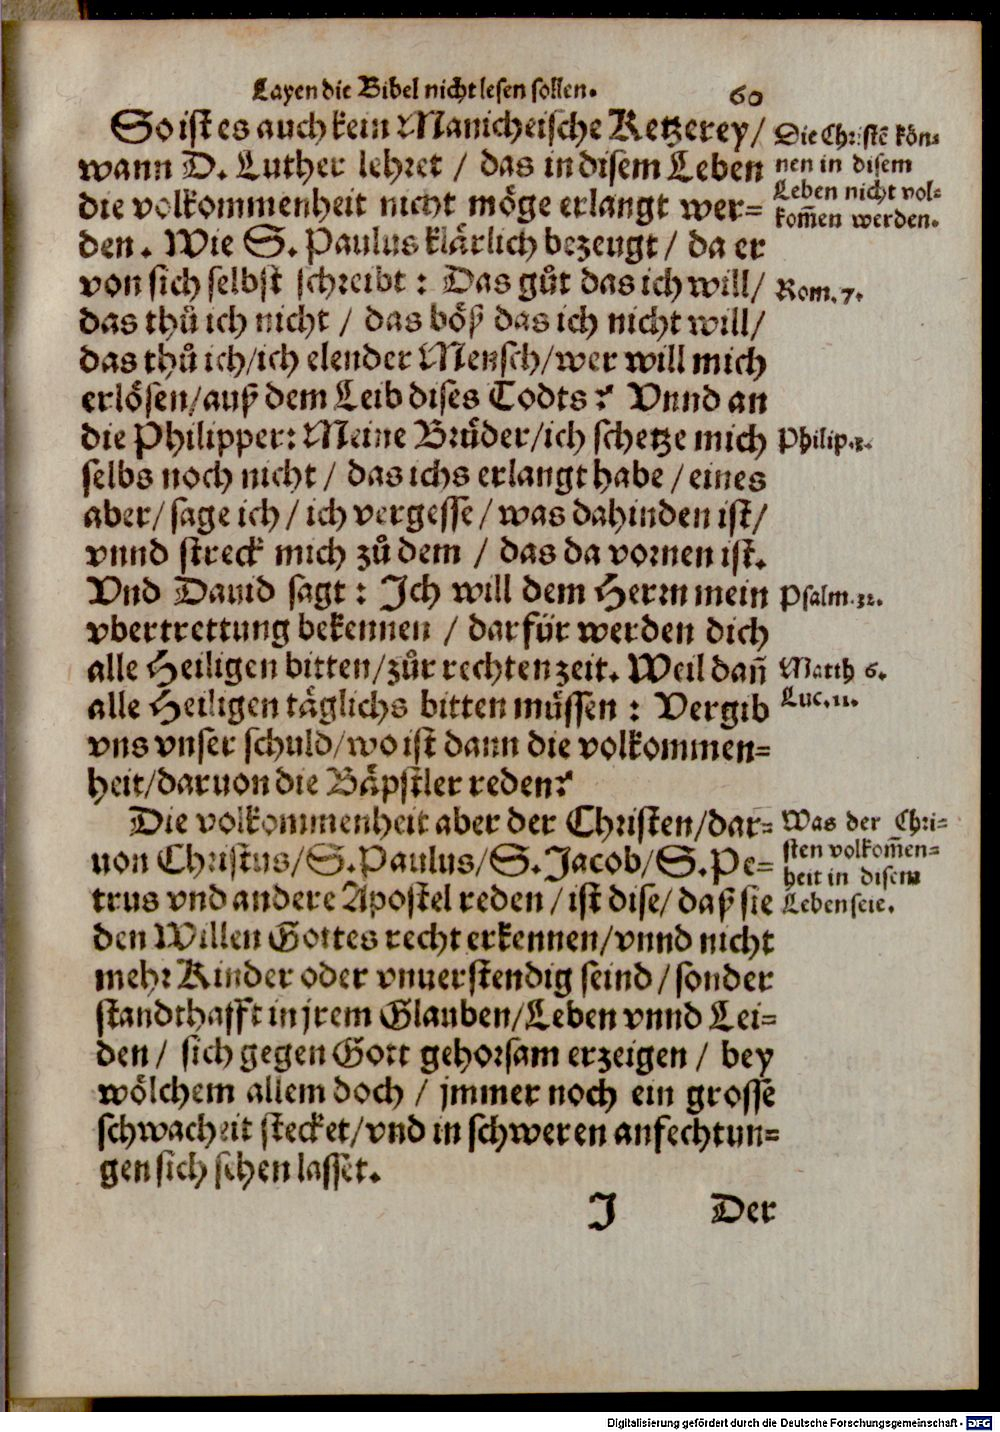 Layen die Bibel nicht lesen sollen. 60
So ist es auch kein Manicheische Ketzerey/
wann D. Luther lehret / das in disem Leben
die volkommenheit nicht möge erlangt wer=
den. Wie S. Paulus klärlich bezeugt / da er
von sich selbst schreibt: Das gůt das ich will/
das thů ich nicht / das böß das ich nicht will/
das thů ich/ich elender Mensch/wer will mich
erlösen/auß dem Leib dises Todts? Vnnd an
die Philipper: Meine Brüder/ich schetze mich
selbs noch nicht / das ichs erlangt habe / eines
aber/sage ich / ich vergesse / was dahinden ist/
vnnd streck mich zů dem / das da vornen ist.
Vnd Dauid sagt: Ich will dem Herrn mein
vbertrettung bekennen / darfür werden dich
alle Heiligen bitten/zůr rechten zeit. Weil dañ
alle Heiligen täglichs bitten müssen: Vergib
vns vnser schuld/wo ist dann die volkommen=
heit/daruon die Bäpstler reden?
Die volkommenheit aber der Christen/dar=
uon Christus/S. Paulus/S. Jacob/S. Pe=
trus vnd andere Apostel reden / ist dise/ daß sie
den Willen Gottes recht erkennen/vnnd nicht
mehr Kinder oder vnuerstendig seind / sonder
standthafft in jrem Glauben/Leben vnnd Lei=
den / sich gegen Gott gehorsam erzeigen / bey
wölchem allem doch / jmmer noch ein grosse
schwacheit stecket/vnd in schweren anfechtun=
gen sich sehen lasset.
I Der
Die Christē kön=
nen in disem
Leben nicht vol=
kom̄en werden.
Rom. 7.
Philip. 3.
Psalm. 32.
Matth 6.
Luc. 11.
Was der Chri=
sten volkom̄en=
heit in disem
Leben seie.
Digitalisierung gefördert durch die Deutsche Forschungsgemeinschaft - DFG